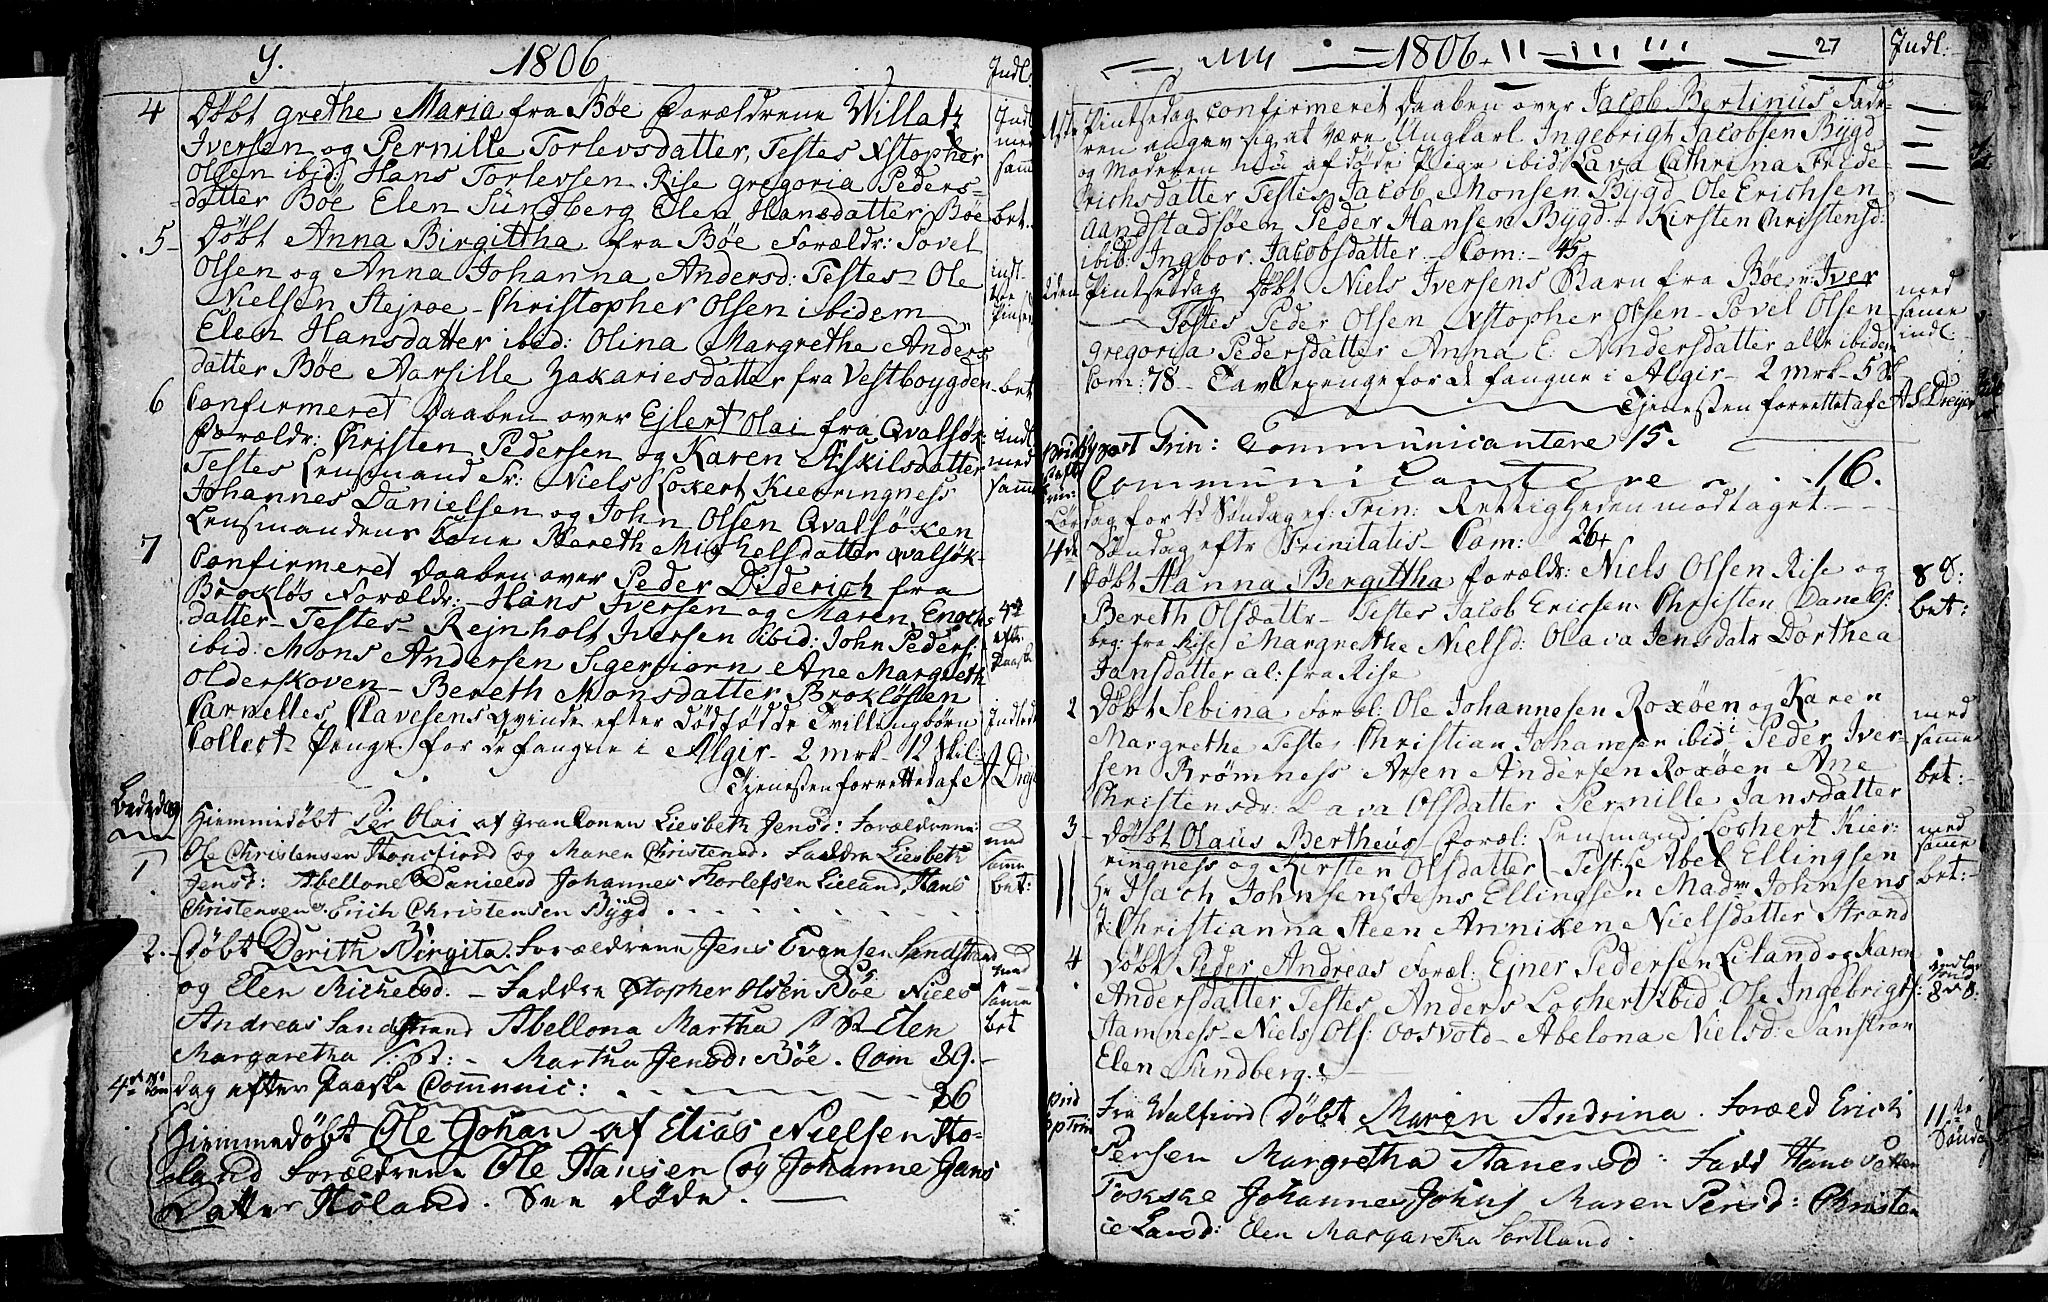 1806
Indl:
4 Døbt Grethe Maria fra Bøe Forældrene Willatz
Iversen og Pernille Torlevsdatter, Testes Xstopher
Olsen ibid: Hans Torlevsen Rise Gregoria Peders-
datter Bøe Elen Sundberg Elen Hansdatter Bøe
Indl med samme bet:
5 Døbt Anna Birgittha fra Bøe Forældr: Povel
Olsen og Anna Johanna Andersd: Testes Ole
Nielsen Christopher Olsen ibidem
Elen Hansdatter ibid: Olina Margrethe Anders
datter Bøe Marsille Zakariesdatter fra Vestboygden
bet
6 Confirmeret Daaben over Ejlert Olai fra Qvalsøk:
Forældr: Christen Pedersen og Karen Askilsdatter
Testes Lensmand Sr: Niels Lokert Kierringness
Johannes Danielsen og John Olsen Qvalsøken
Lensmandens Kone Bereth Michelsdatter Qvalsøk-
Indl med samme
7 Confirmeret Daaben over Peder Diderich fra
Brokløs Forældr: Hans Iversen og Maren Enochs
datter - Testes - Rejnholt Iversen ibid: John Peders:
ibid: Mons Andersen Sigerstiorn Ane Margreth
Olderskoven - Bereth Monsdatter Brokløsen
4de eftr Paaske
Olavesens Qvinde efter dødfødde Tvillingbørn
Collect Penge for de fangne i Algir - 2 mrk - 12 skil:
Tjenesten forrettet af A Dreyer
Bededag
1 Hiemmedøbt Per Olai af Grankonen Liesbeth Jensd: Forældrene:
Ole Christensen og Maren Christensd: Faddre Liesbeth
Jensd: Abellone Danielsd Johannes Torlefsen Lieland, Hans
Christensen, Erich Christensen Bygd
med samme bet:
2. Døbt Dorith Birgita. Forældrene Jens Evensen Sandstrand
og Elen Mickelsd: - Faddre Xstopher Olsen Bøe Niels
Andreas Sandstrand Abellona Martha Elen
Margaretha - Martha Jensd: Bøe. Com 29.-
med samme bet
4de Søndag efter Paaske Communic: 26
Hiemmedøbt Ole Johan af Elias Nielsen Ho-
land Forældrene Ole Hansen og Johanne Jans
Datter Holand. See døde.
1806
27
Indl:
1ste Pintsedag Confirmeret Daaben over Jacob Bertinus Fade-
ren angev sig at være Ungkarl Ingebrigt Jacobsen Bygd
og Moderen nu afdøde Pige ibid Lava Cathrina Fride-
richsdatter Testes Jacob Monsen Bygd Ole Erichsen
Aandstadsøen Peder Hansen Bygd - Kirsten Christensd:
ibid: Ingbor Jacobsdatter - Com: - 45
2den Pintsedag Døbt Niels Iversens Barn fra Bøe n: Iver
Testes Peder Olsen Xstopher Olsen - Povel Olsen
Gregoria Pedersdatter Anna E. Andersdatter alle ibidem
Com: 78 - Tavlepenge for de fangne i Algir - 2 mrk - 5 sk
Tjenesten forrettet af A S Dreyer
med samme indl
post Trin: Communicantere 15.
Communicantere 16.
Lørdag for 4de Søndag ef: Trin: Rettigheden modtaget
4de Søndag eftr Trinitatis - Com: 26
1 Døbt Hanna Bergittha Forældr: Niels Olsen Rise og
Bereth Olsdattr - Testes Jacob Ericsen Christen Danels:
beg: fra Rise Margrethe Nielsd: Olava Jensdatr Dorthea
Jansdatter al: fra Rise
8 S: bet:
2 Døbt Sebina Foræl: Ole Johannesen Roxøen og Karen
Margrethe Testes Christian Johanesen ibid: Peder Iver-
sen Strømness Aren Andersen Roxøen Ane
Christensdr: Lava Olsdatter Pernille Jansdatter
med samme bet:
3 Døbt Olaus Bertheus Foræl: Lensmand Lochert Kier-
ringness og Kirsten Olsdatter Test: Abel Ellingsen
Hr Isach Johnsen Jens Ellingsen Madm Johnsens
Christianna Steen Anniken Nielsdatter Strand
med samme bet:
4 Døbt Peder Andreas Foræl: Ejner Pedersen Liland og Karen
Andersdatter Testes Anders Lochert ibid Ole Ingebrigts:
Stamness - Niels Ols: Oosvold - Abelona Nielsd: Sanstran
Elen Sandberg.
Fra Walfiord Døbt Maren Andrina. Foræld Erich
Persen Margretha Hansd: Fadd Hans
Johannes Johns Maren Persd: Christen
Larsd: Elen Margaretha Sortland.
11te Søndag